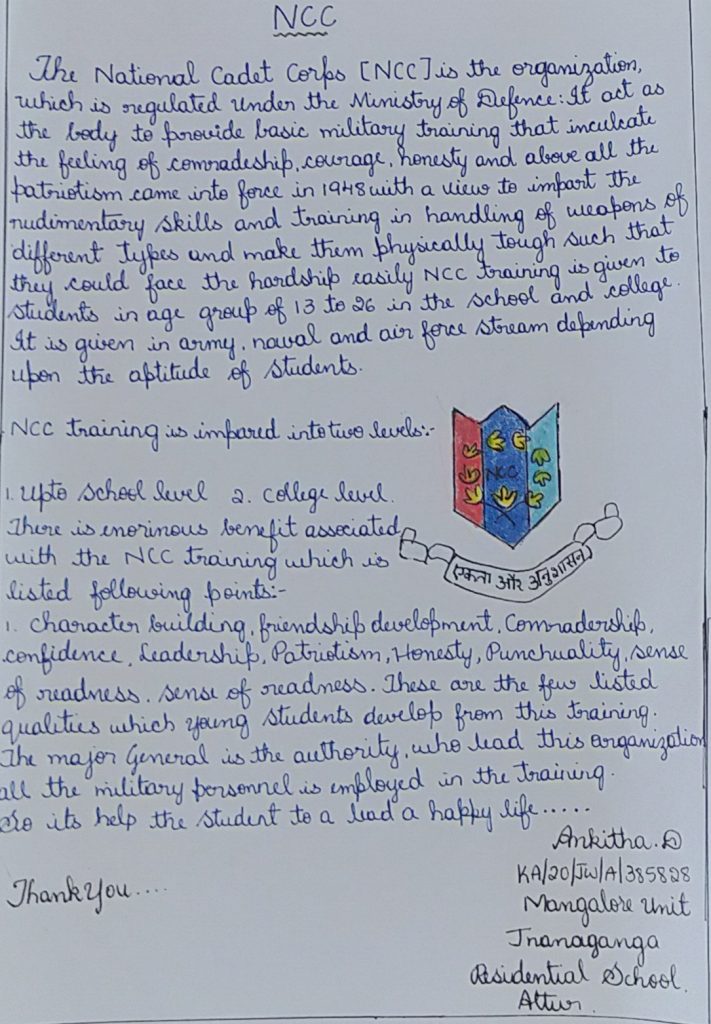 NCC
The National Cadet Corps [NCC] is the organization,
which is regulated under the Ministry of Defence: It act as
the body to provide basic military training that inculcate
the feeling of comradeship, courage, honesty and above all the
patriotism came into force in 1948 with a view to impart the
rudimentary skills and training in handling of weapons of
different types and make them physically tough such that
they could face the hardship easily NCC training is given to
students in age group of 13 to 26 in the school and college.
It is given in army, naval and air force stream depending
upon the aptitude of students.
NCC training is impared into two levels:-
1. Upto school level 2. college level.
There is enorinous benefit associated
with the NCC training which is
listed following points:-
NCC
एकता और अनुशासन
1. Character building, friendship development, Comradership,
confidence, Leadership, Patriotism, Honesty, Punchuality, sense
of readness, sense of readness. These are the few listed
qualities which young students develop from this training.
The major General is the authority, who lead this organization
all the military personnel is employed in the training.
So its help the student to a lead a happy life.....
Ankitha.D
KA/20/JW/A/385828
Mangalore Unit
Jnanaganga
Residential School,
Attur.
Thank You....